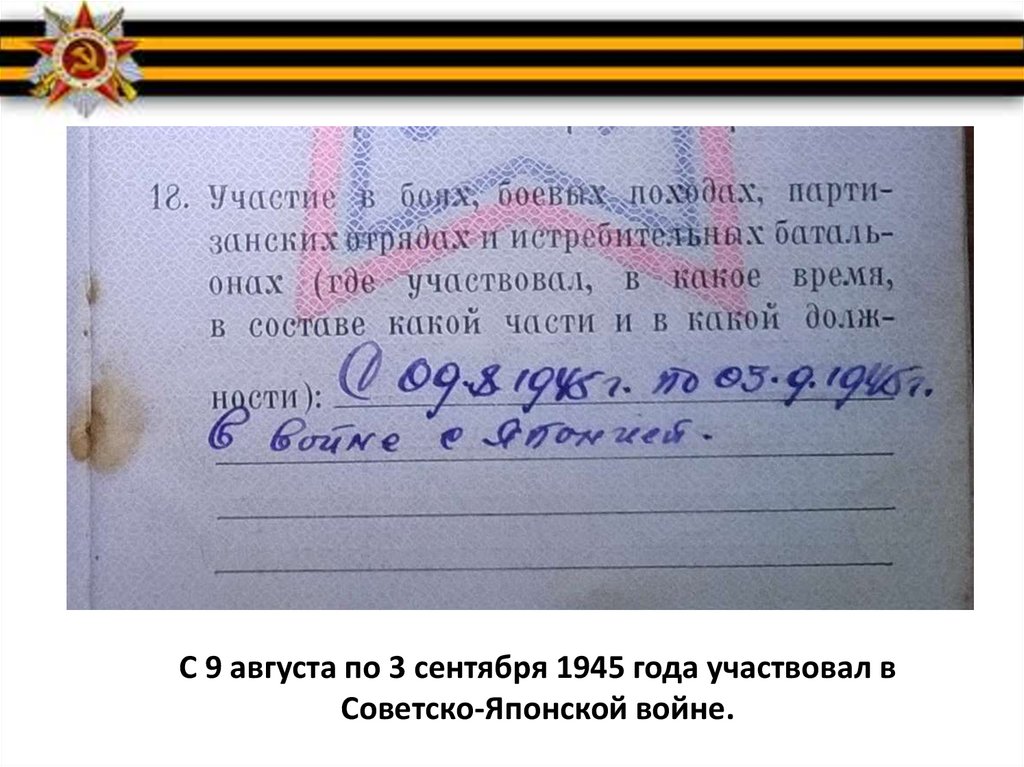 18. Участие в боях, боевых походах, парти-
занских отрядах и истребительных баталь-
онах (где участвовал, в какое время,
в составе какой части и в какой долж-
ности): С 09.8 1945 г. по 03.9.1945 г.
в войне с Японией.
С 9 августа по 3 сентября 1945 года участвовал в
Советско-Японской войне.